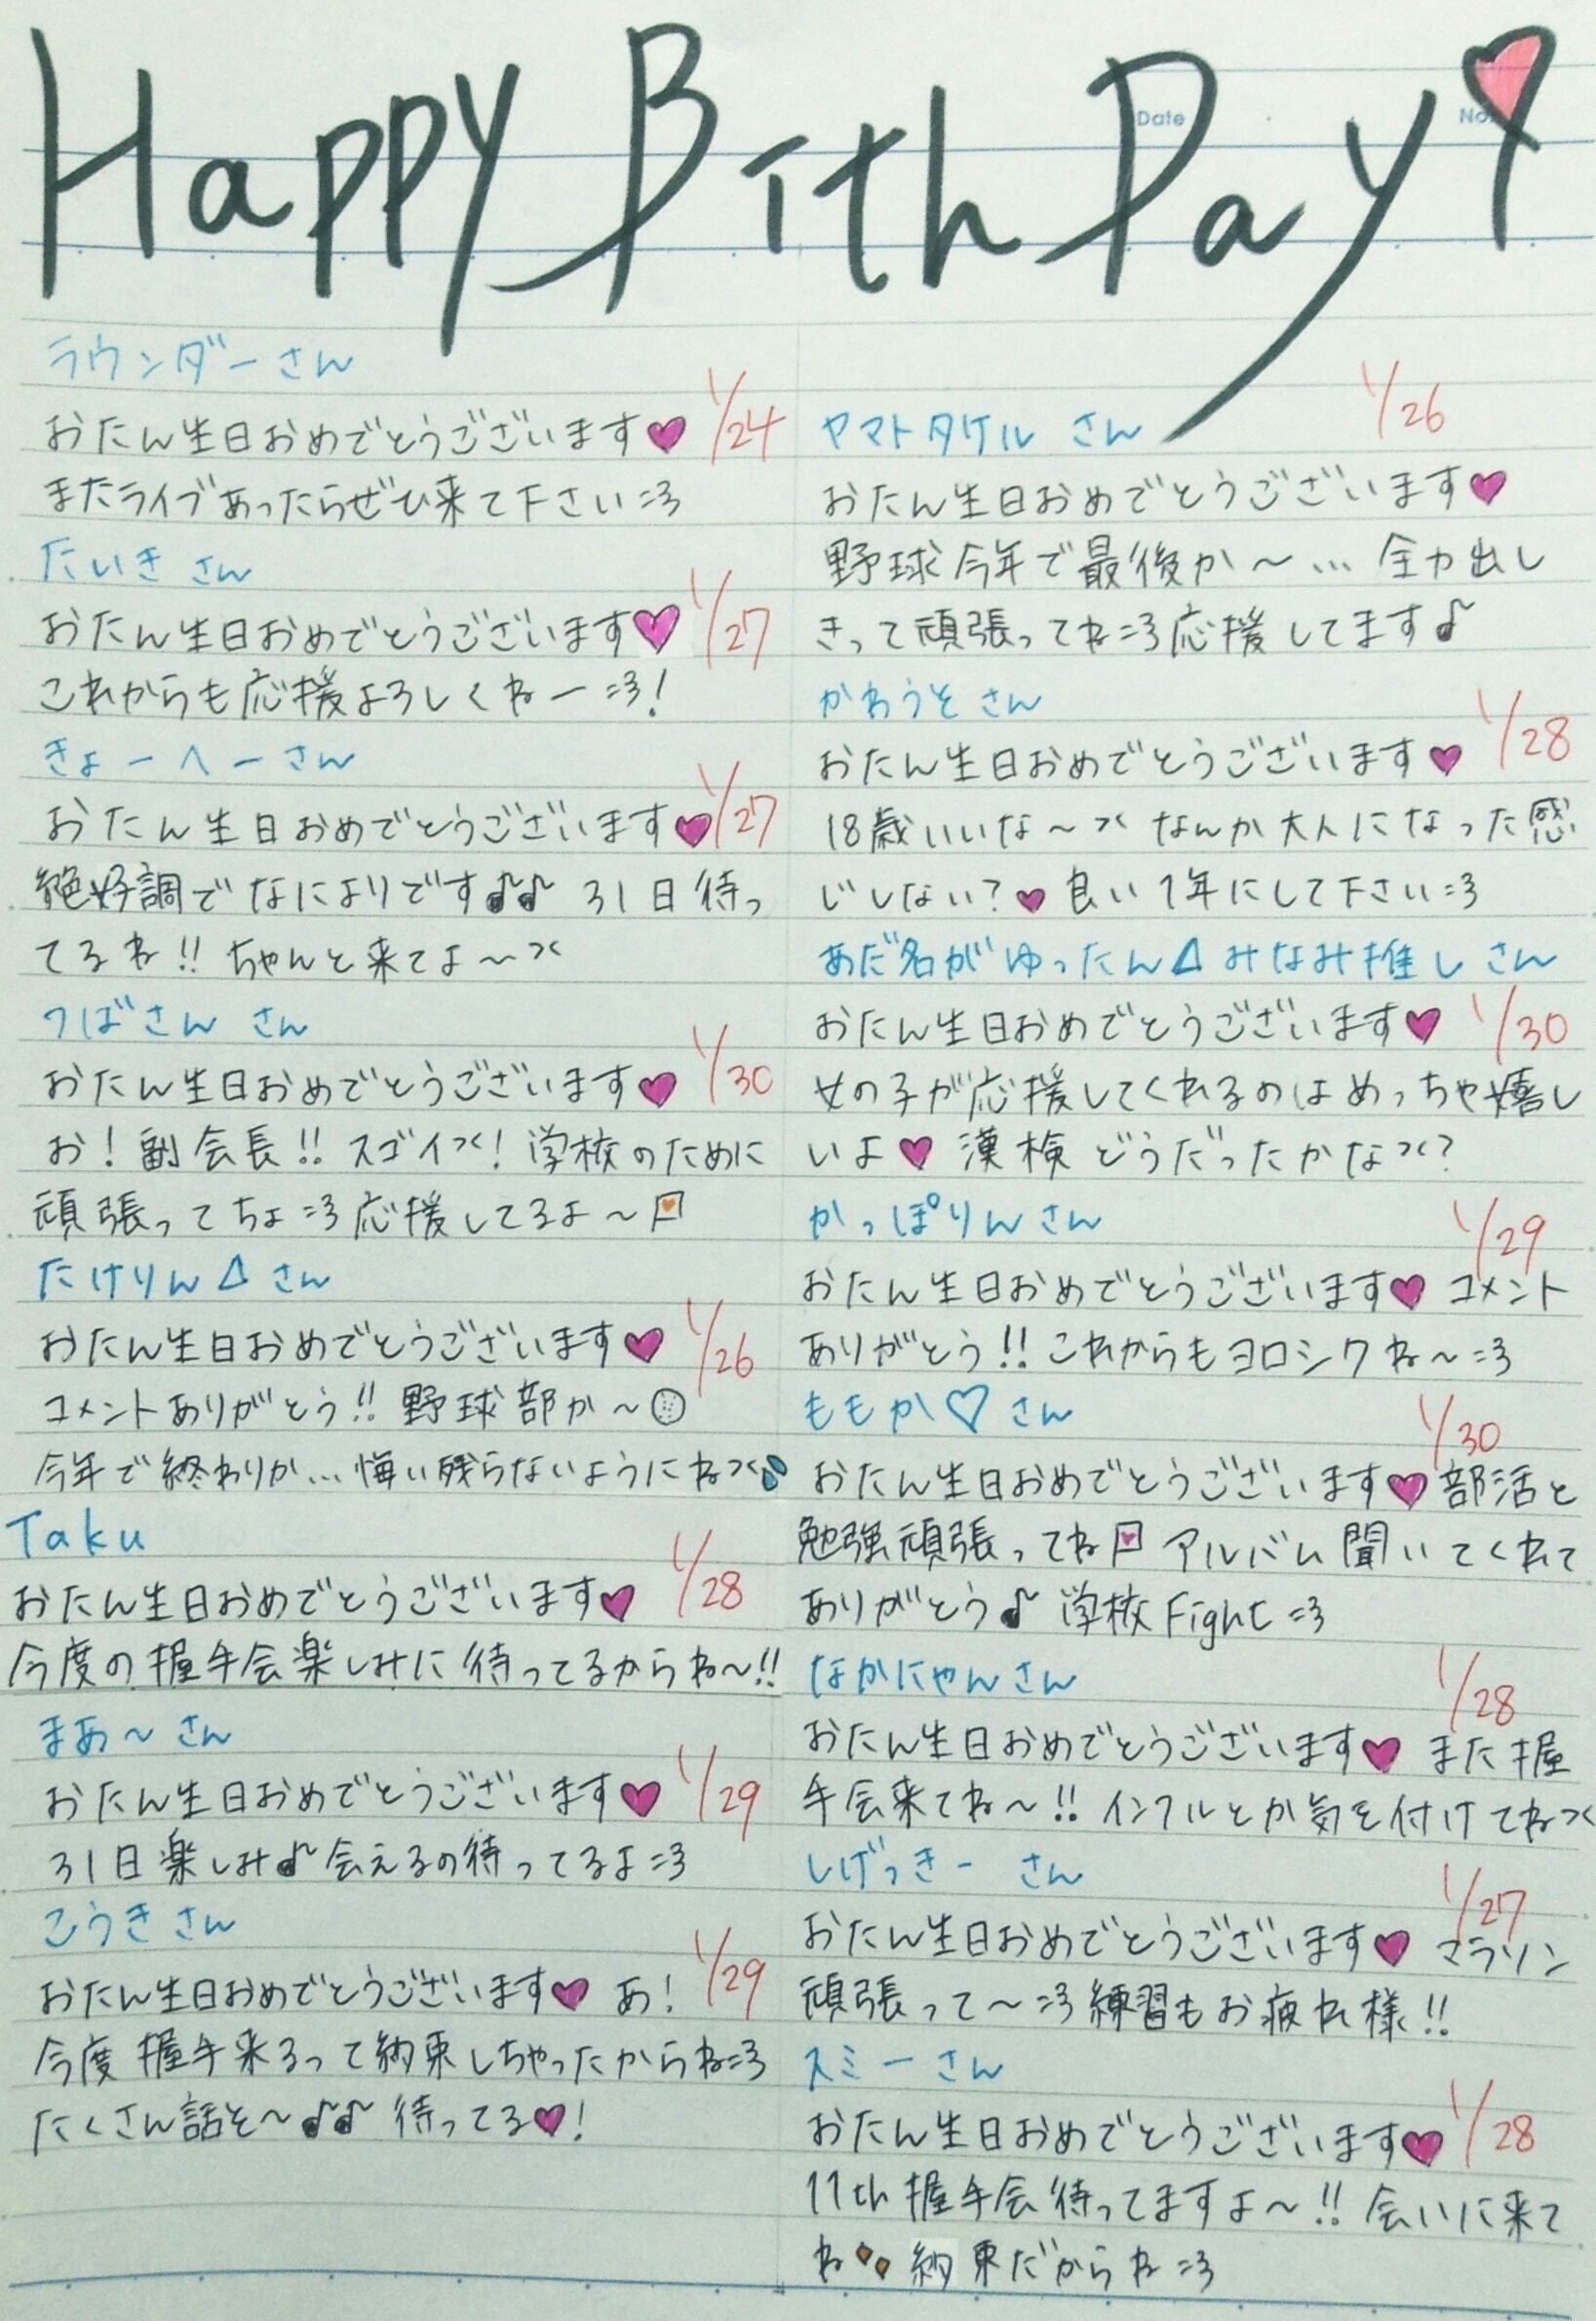 Happy Bith Day!
Date
No.
ラウンダーさん
おたん生日おめでとうございます♥ 1/24
またライブあったらぜひ来て下さい=3
たいきさん
おたん生日おめでとうございます♥ 1/27
これからも応援よろしくねー=3!
きょーへーさん
おたん生日おめでとうございます♥ 1/27
絶好調でなによりです♪♪ 31日待っ
てるね!! ちゃんと来てよ〜><
つばさん さん
おたん生日おめでとうございます♥ 1/30
お!副会長!! スゴイ><! 学校のために
頑張ってちょ=3応援してるよ〜
たけりん△さん
おたん生日おめでとうございます♥ 1/26
コメントありがとう!! 野球部か〜
今年で終わりか...悔い残らないようにね><
Taku
おたん生日おめでとうございます♥ 1/28
今度の握手会楽しみに待ってるからね〜!!
まあ〜さん
おたん生日おめでとうございます♥ 1/29
31日楽しみ♪会えるの待ってるよ=3
こうきさん
おたん生日おめでとうございます♥ あ! 1/29
今度握手来るって約束しちゃったからね=3
たくさん話そ〜♪♪ 待ってる♥!
ヤマトタケルさん 1/26
おたん生日おめでとうございます♥
野球今年で最後か〜... 全力出し
きって頑張ってね=3応援してます♪
かわうそさん
おたん生日おめでとうございます♥ 1/28
18歳いいな〜>< なんか大人になった感
じしない?♥ 良い1年にして下さい=3
あだ名がゆったん△みなみ推しさん
おたん生日おめでとうございます♥ 1/30
女の子が応援してくれるのはめっちゃ嬉し
いよ♥ 漢検どうだったかな><?
かっぽりんさん 1/29
おたん生日おめでとうございます♥ コメント
ありがとう!! これからもヨロシクね〜=3
ももか♡さん 1/30
おたん生日おめでとうございます♥部活と
勉強頑張ってね アルバム聞いてくれて
ありがとう♪ 学校Fight=3
なかにゃんさん 1/28
おたん生日おめでとうございます♥ また握
手会来てね〜!! インフルとか気を付けてね><
しげっきーさん 1/27
おたん生日おめでとうございます♥ マラソン
頑張って〜=3練習もお疲れ様!!
スミーさん
おたん生日おめでとうございます♥ 1/28
11th握手会待ってますよ〜!! 会いに来て
ね 約束だからね=3